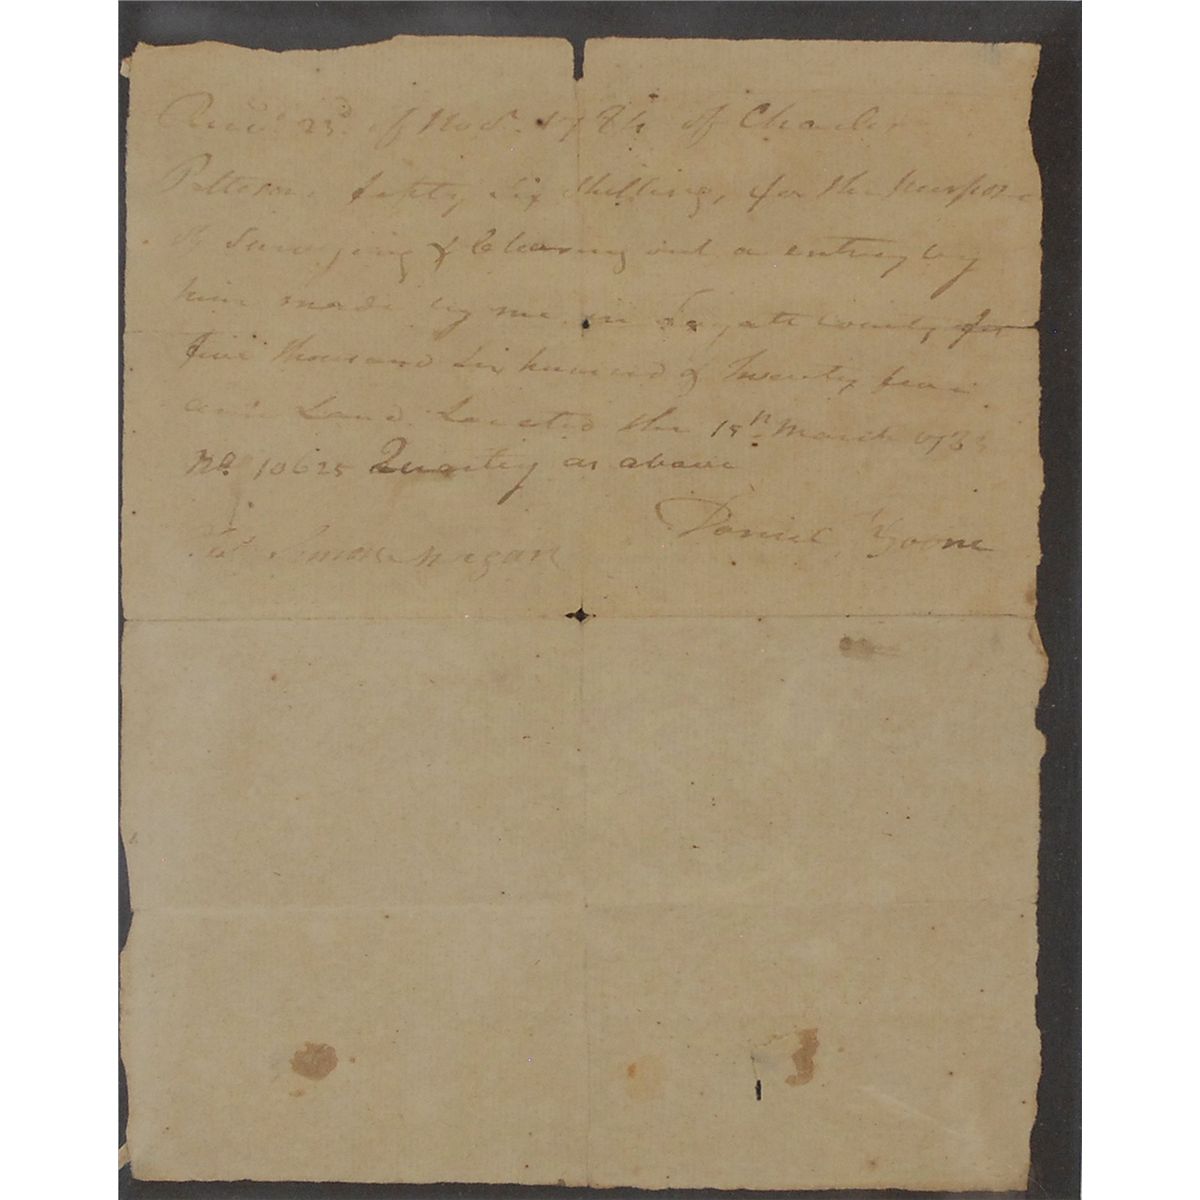 Recd. 23d. of Nov. 1784 of Charles
Patteson, fifty six shillings, for the purpose
of Surveying & Clearing out a entrey by
him made by me in Fayatte County for
five thousand six hundred & twenty four
acres Land Located the 15th March 1783
No. 10625 Quantity as above
Daniel Boone